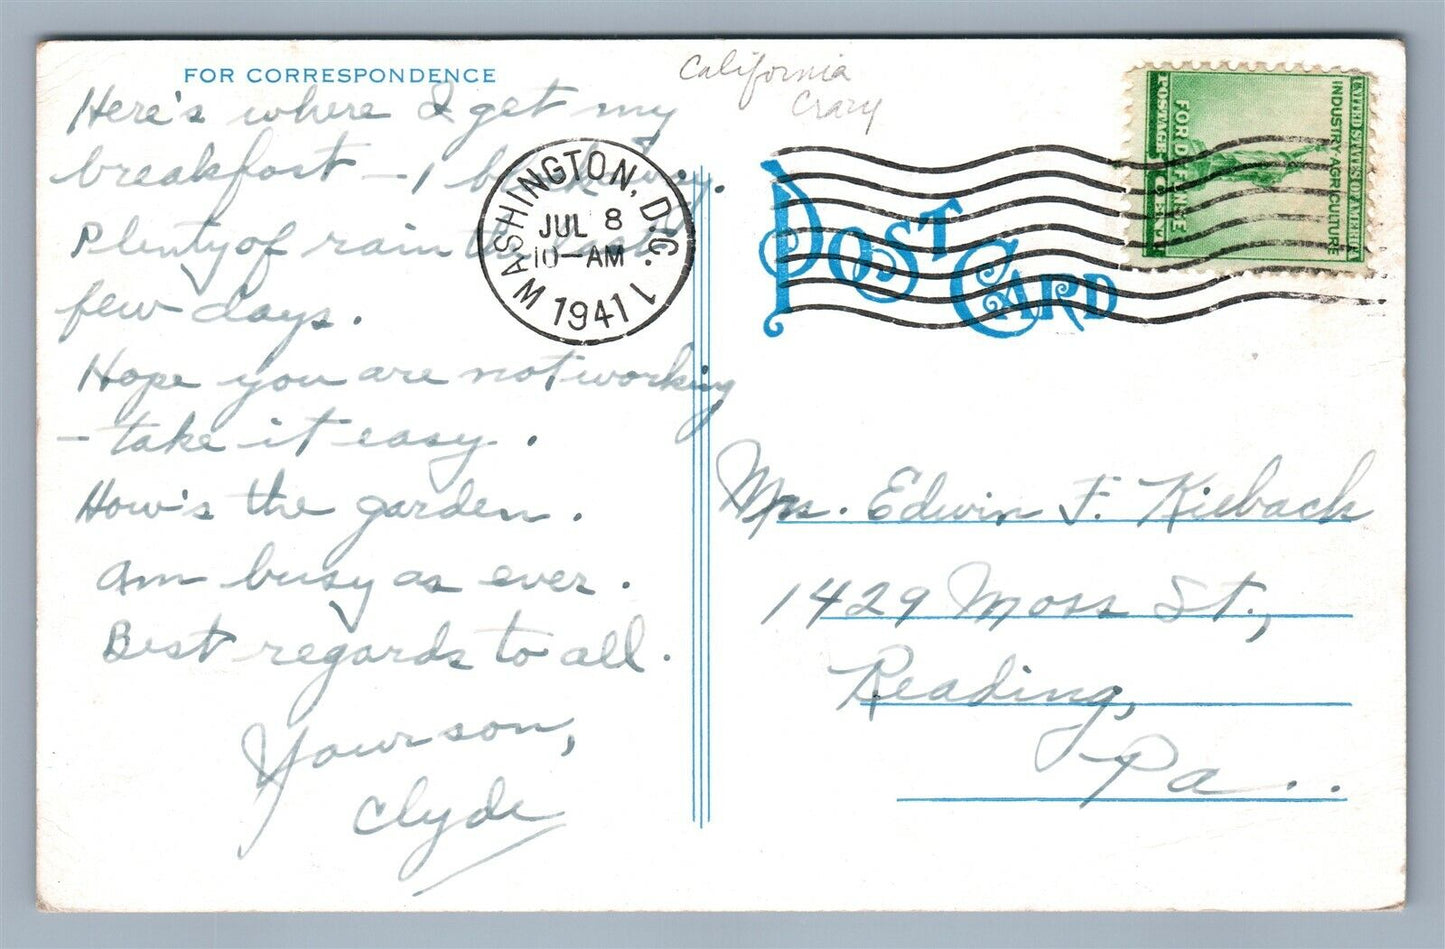 FOR CORRESPONDENCE
California
Crazy
Here's where I get my
breakfast – 1 block away.
Plenty of rain the last
few days.
Hope you are not working
– take it easy.
How's the garden.
Am busy as ever.
Best regards to all.
Your son,
Clyde
WASHINGTON, D.C.
JUL 8
10–AM
1941
1
POST CARD
UNITED STATES OF AMERICA
INDUSTRY·AGRICULTURE
FOR DEFENSE
POSTAGE
Mrs. Edwin F. Kieback
1429 Moss St.,
Reading,
Pa..